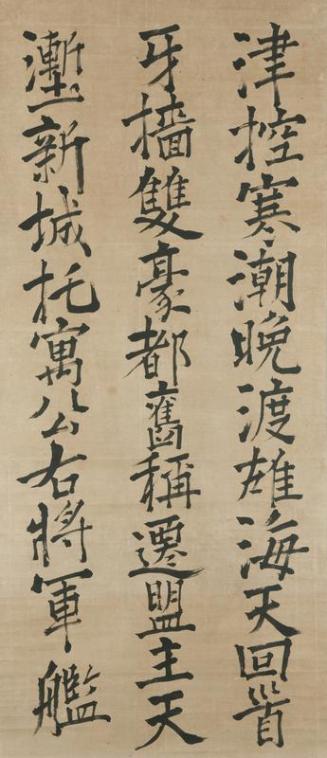 津控寒潮晚渡雄海天回首
牙檣雙豪都舊稱遷盟主天
塹新城托寓公右將軍艦